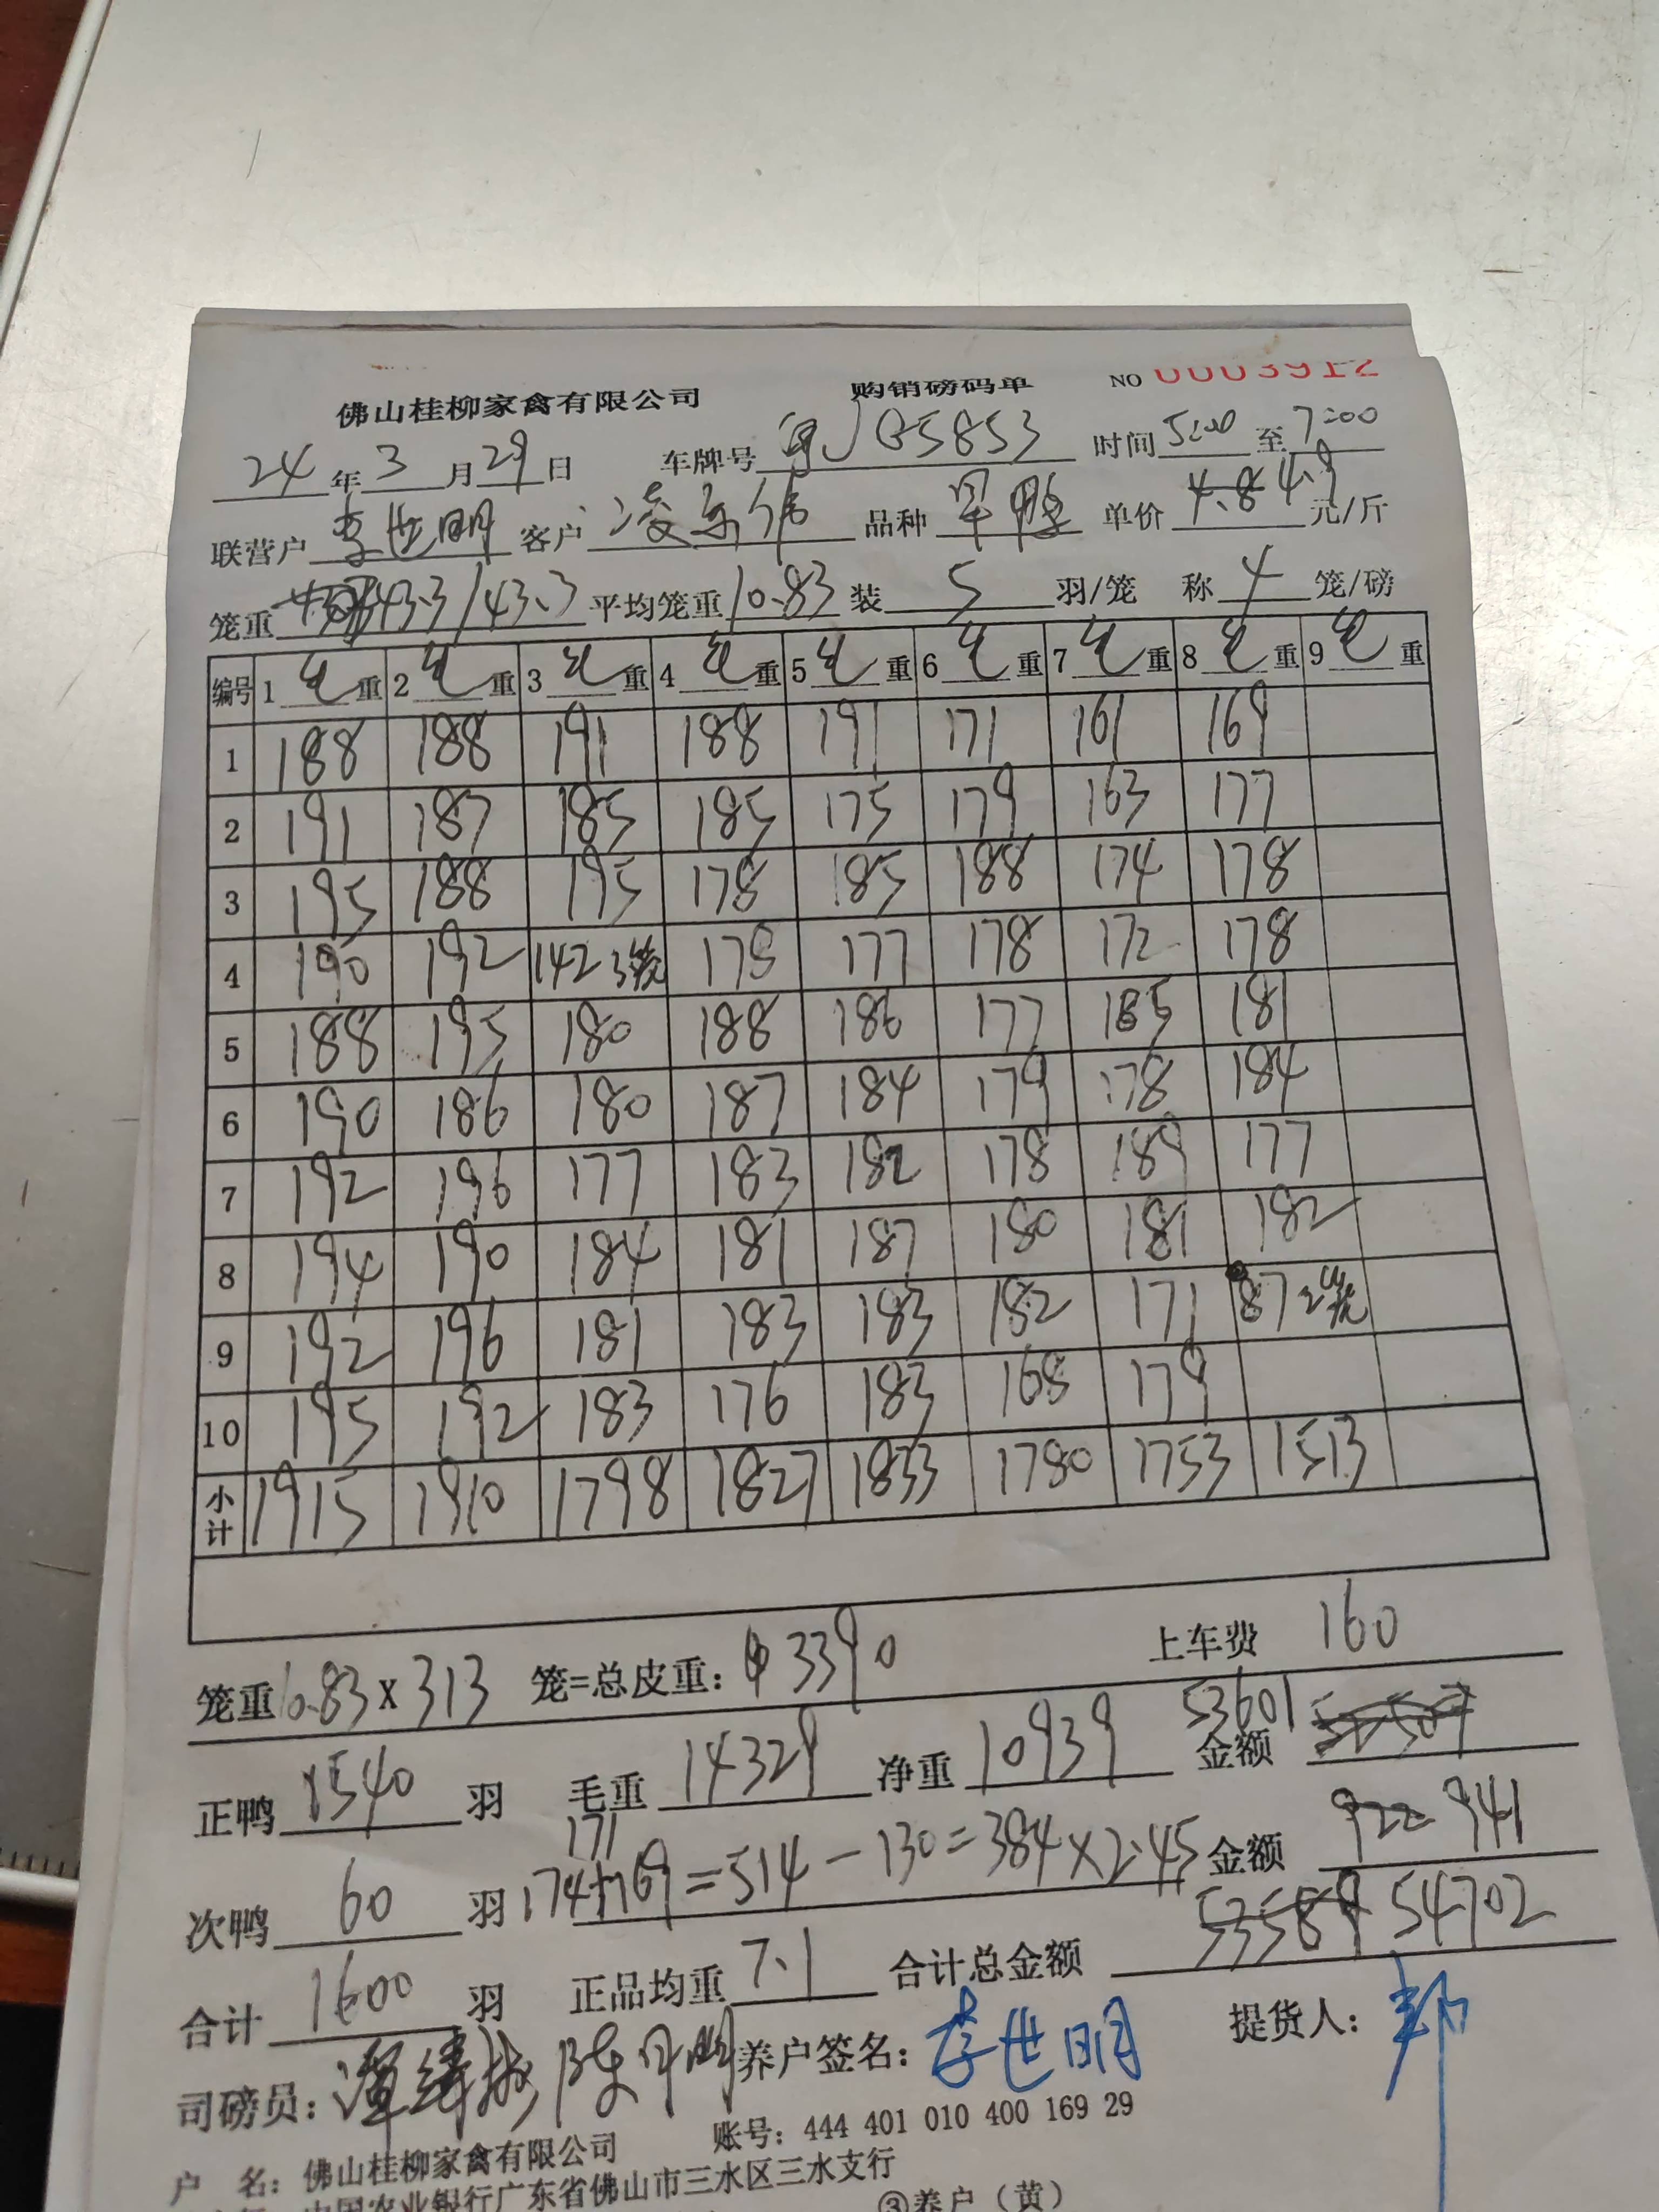 佛山桂柳家禽有限公司 购销磅码单 NO 0003912
24年3月29日 车牌号 粤J G5853 时间 5:00 至 7:00
联营户 李世明 客户 凌 品种 旱鸭 单价 4.8 4.9 元/斤
笼重 43.3/43.3 平均笼重 10.83 装 5 羽/笼 称 4 笼/磅
编号 1 毛重 2 毛重 3 毛重 4 毛重 5 毛重 6 毛重 7 毛重 8 毛重 9 毛重
1 188 188 191 188 191 171 161 169
2 191 187 185 185 175 179 163 177
3 195 188 195 178 185 188 174 178
4 190 192 142 3笼 178 177 178 172 178
5 188 195 180 188 186 177 185 181
6 190 186 180 187 184 179 178 184
7 192 196 177 183 182 178 189 177
8 194 190 184 181 187 180 181 182
9 192 196 181 183 183 182 171 87 2笼
10 195 192 183 176 183 168 179
小计 1915 1910 1798 1827 1833 1780 1753 1513
笼重 10.83 x 313 笼=总皮重: 3390 上车费 160
正鸭 1540 羽 毛重 14329 净重 10939 金额 53601
次鸭 60 羽 171 174+169=514-130=384×2.45 金额 922 941
合计 1600 羽 正品均重 7.1 合计总金额 53589 54702
司磅员: 养户签名: 李世明 提货人: 邦
户 名: 佛山桂柳家禽有限公司 账号: 444 401 010 400 169 29
中国农业银行广东省佛山市三水区三水支行
③养户（黄）